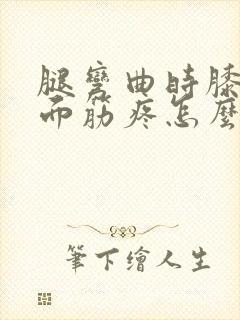 腿彎曲時膝
而筋疼怎麼
筆下繪人生